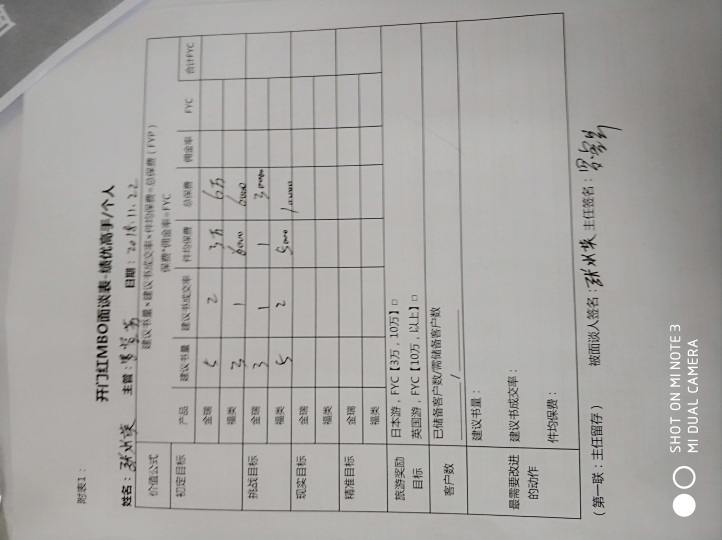 附表1：
开门红MBO面谈表-绩优高手/个人
姓名： 主管： 日期：2018.11.22
价值公式 建议书量*建议书成交率*件均保费=总保费（FYP）
保费*佣金率=FYC
产品 建议书量 建议书成交率 件均保费 总保费 佣金率 FYC 合计FYC
初定目标 金瑞 5 2 3万 6万
福类 3 1 6000 6000
挑战目标 金瑞 3 1 1
福类 5 2 5000 10000
现实目标 金瑞
福类
精准目标 金瑞
福类
旅游奖励目标 日本游，FYC【3万，10万】□
英国游，FYC【10万，以上】□
客户数 已储备客户数/需储备客户数
/
最需要改进的动作 建议书量：
建议书成交率：
件均保费：
（第一联：主任留存） 被面谈人签名： 主任签名：
SHOT ON MI NOTE 3
MI DUAL CAMERA